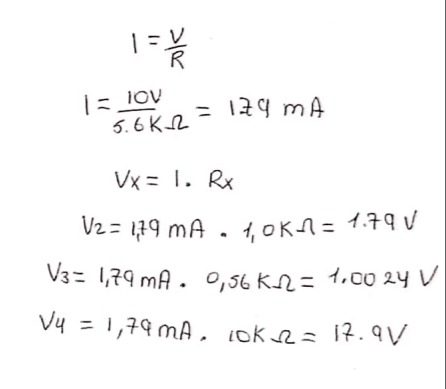 I = V/R
I = 10V/5.6KΩ = 179 mA
Vx = I. Rx
V2 = 1,79 mA . 1,0KΩ = 1.79 V
V3 = 1,79 mA. 0,56 KΩ = 1.0024 V
V4 = 1,79 mA. 10KΩ = 17.9V